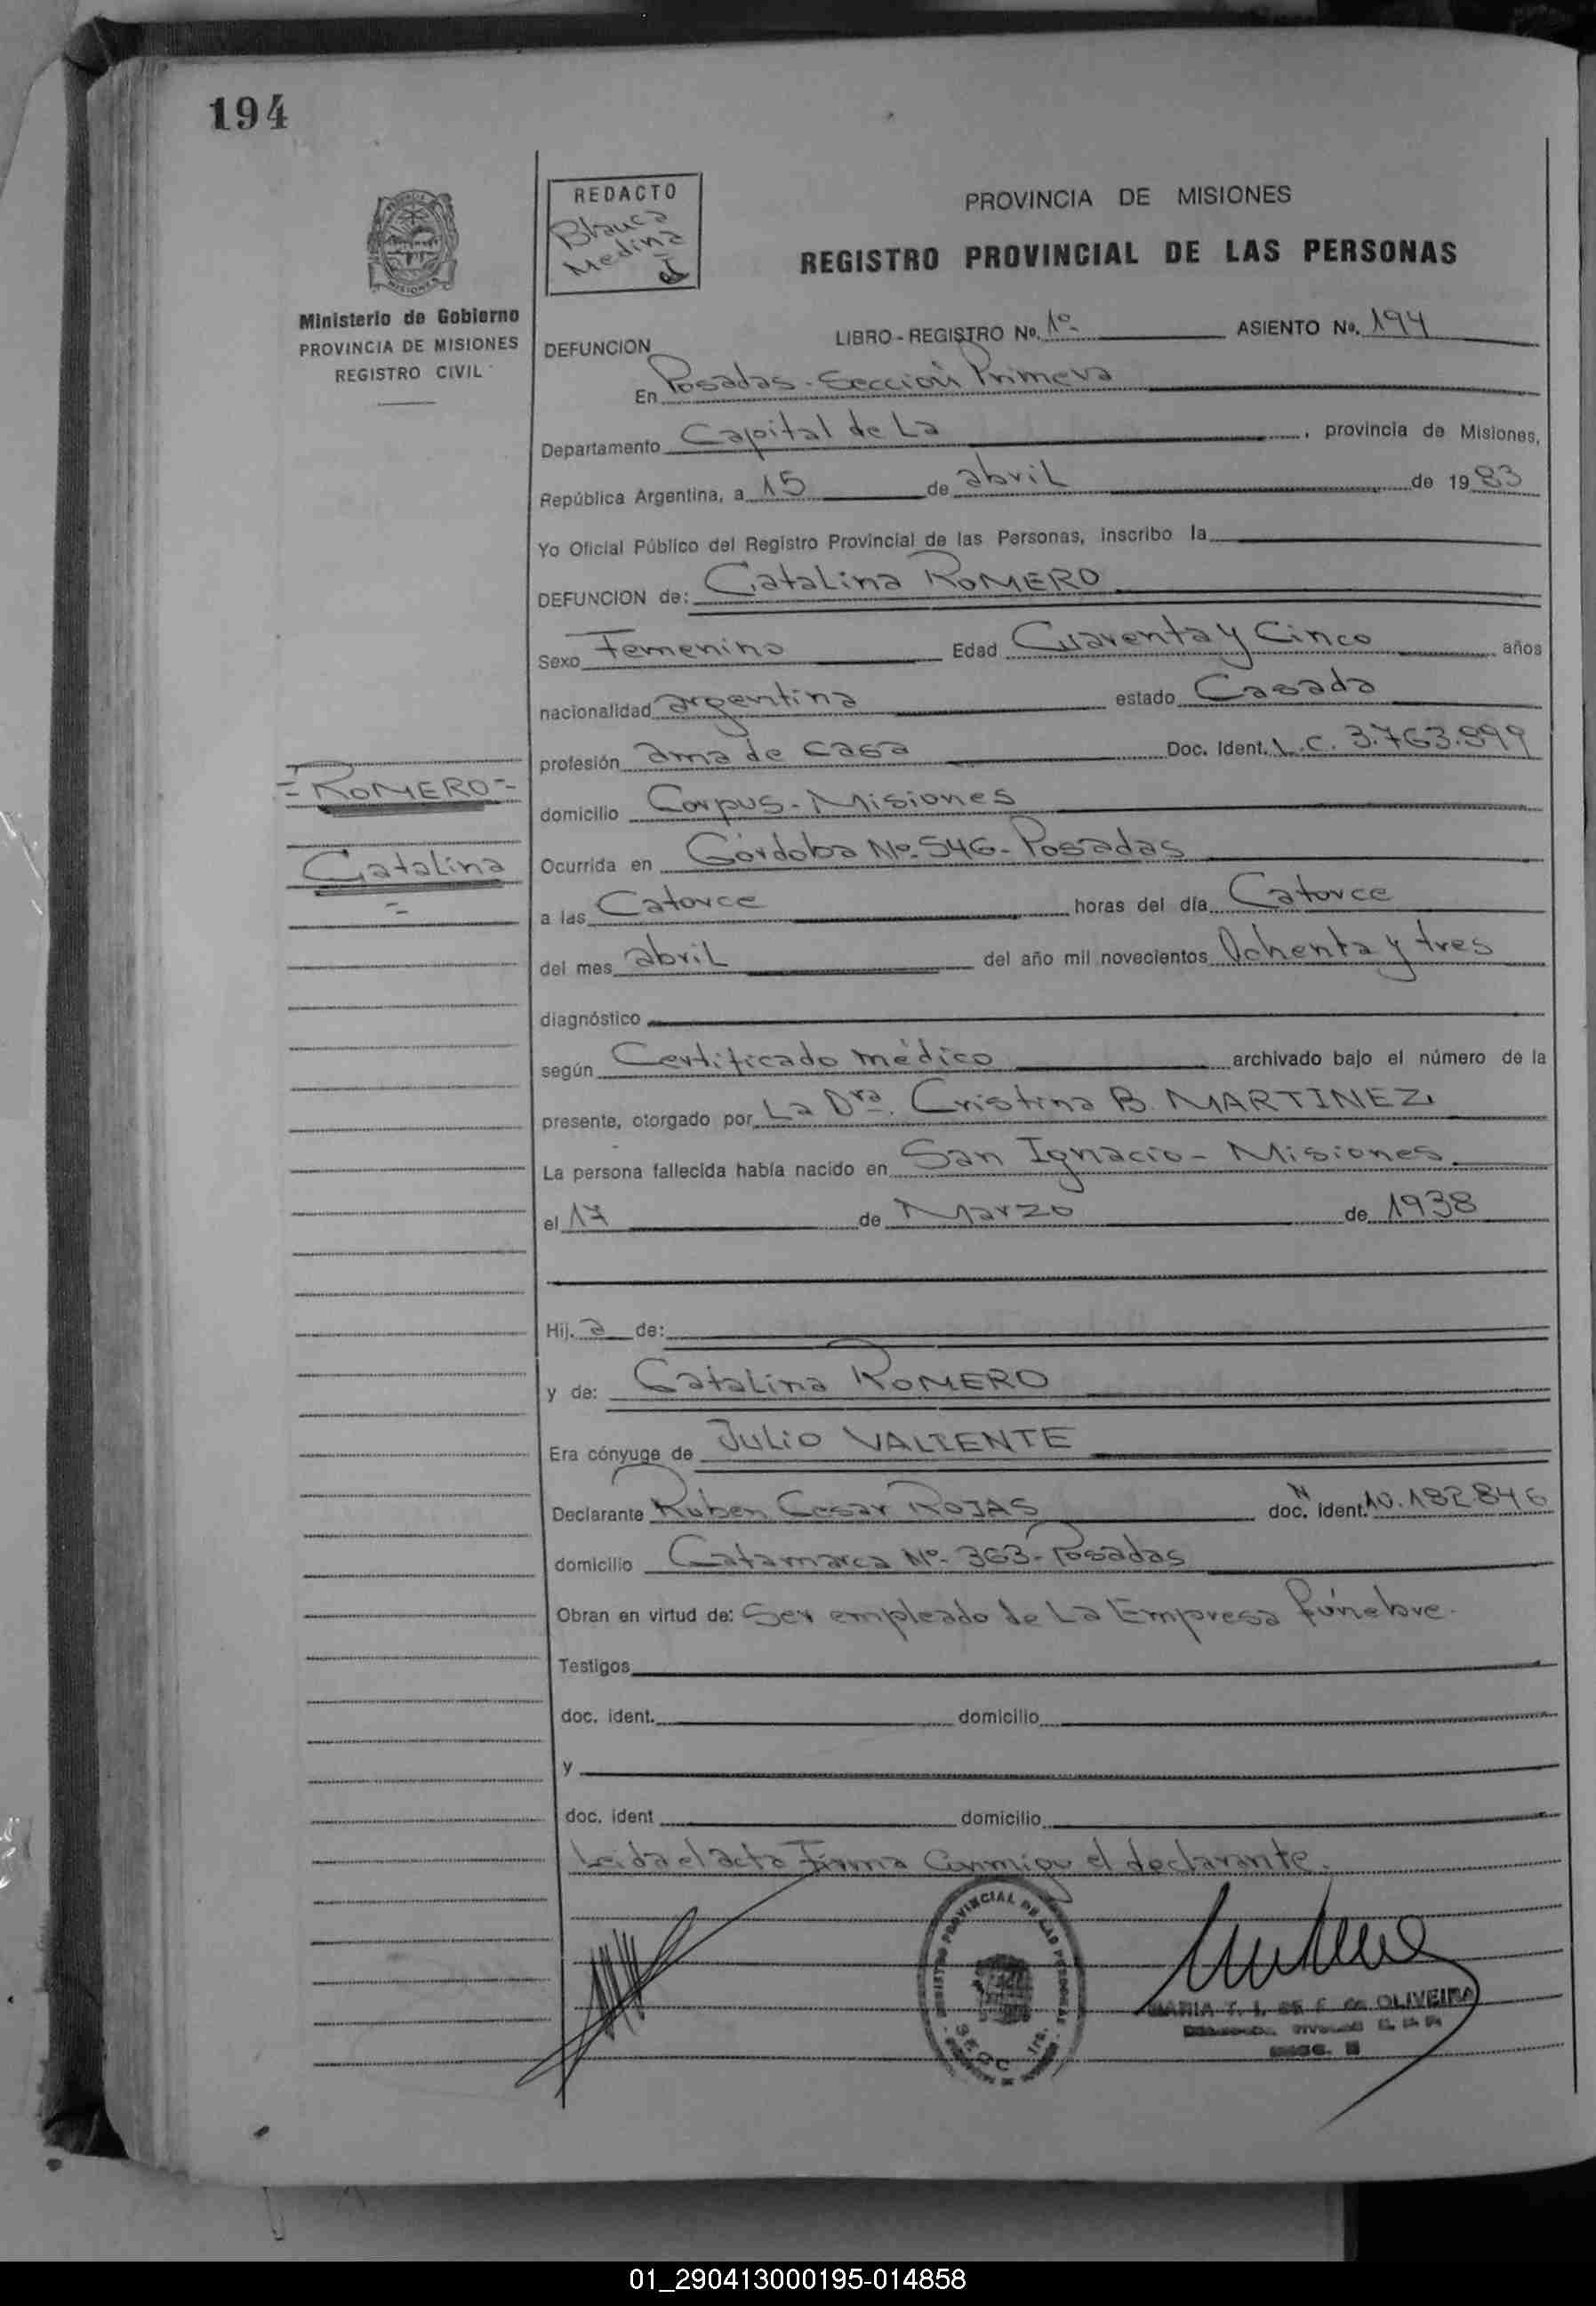 194
Ministerio de Gobierno
PROVINCIA DE MISIONES
REGISTRO CIVIL
REDACTO
Blanca
Medina
PROVINCIA DE MISIONES
REGISTRO PROVINCIAL DE LAS PERSONAS
LIBRO - REGISTRO No. 1º ASIENTO No. 194
DEFUNCION
En Posadas - Sección Primera
Departamento Capital de La , provincia de Misiones,
República Argentina, a 15 de abril de 1983
Yo Oficial Público del Registro Provincial de las Personas, inscribo la
DEFUNCION de: Catalina ROMERO
Sexo Femenino Edad Cuarenta y Cinco años
nacionalidad argentina estado Casada
profesión ama de casa Doc. Ident. L.C. 3.763.899
= ROMERO =
domicilio Corpus - Misiones
Catalina
=
Ocurrida en Córdoba Nº 546 - Posadas
a las Catorce horas del día Catorce
del mes abril del año mil novecientos Ochenta y tres
diagnóstico
según Certificado médico archivado bajo el número de la
presente, otorgado por La Dra. Cristina B. MARTINEZ
La persona fallecida había nacido en San Ignacio - Misiones
el 17 de Marzo de 1938
Hij. a de:
y de: Catalina ROMERO
Era cónyuge de Julio VALIENTE
Declarante Ruben Cesar ROJAS doc. N ident. 10.182.846
domicilio Catamarca Nº 363 - Posadas
Obran en virtud de: Ser empleado de La Empresa fúnebre.
Testigos
doc. ident. domicilio
y
doc. ident domicilio
Leida el acta Firma Conmigo el declarante.
REGISTRO PROVINCIAL DE LAS PERSONAS
MARIA T. I. DE F. de OLIVEIRA
01_290413000195-014858